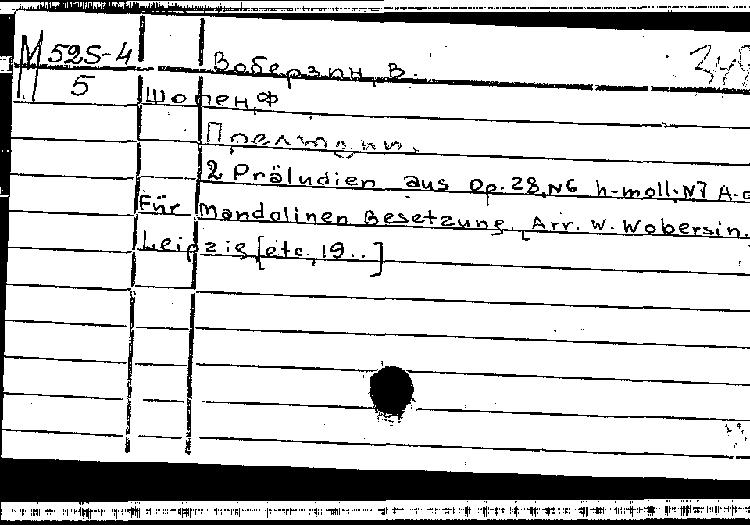 М 525-4
5
Воберзин, В.
Шопен, Ф
Прелюдии.
2 Präludien aus Op. 28, N6 h-moll, N7 A-
Für Mandolinen Besetzung, Arr. W. Wobersin.
Leipzig [etc, 19..]